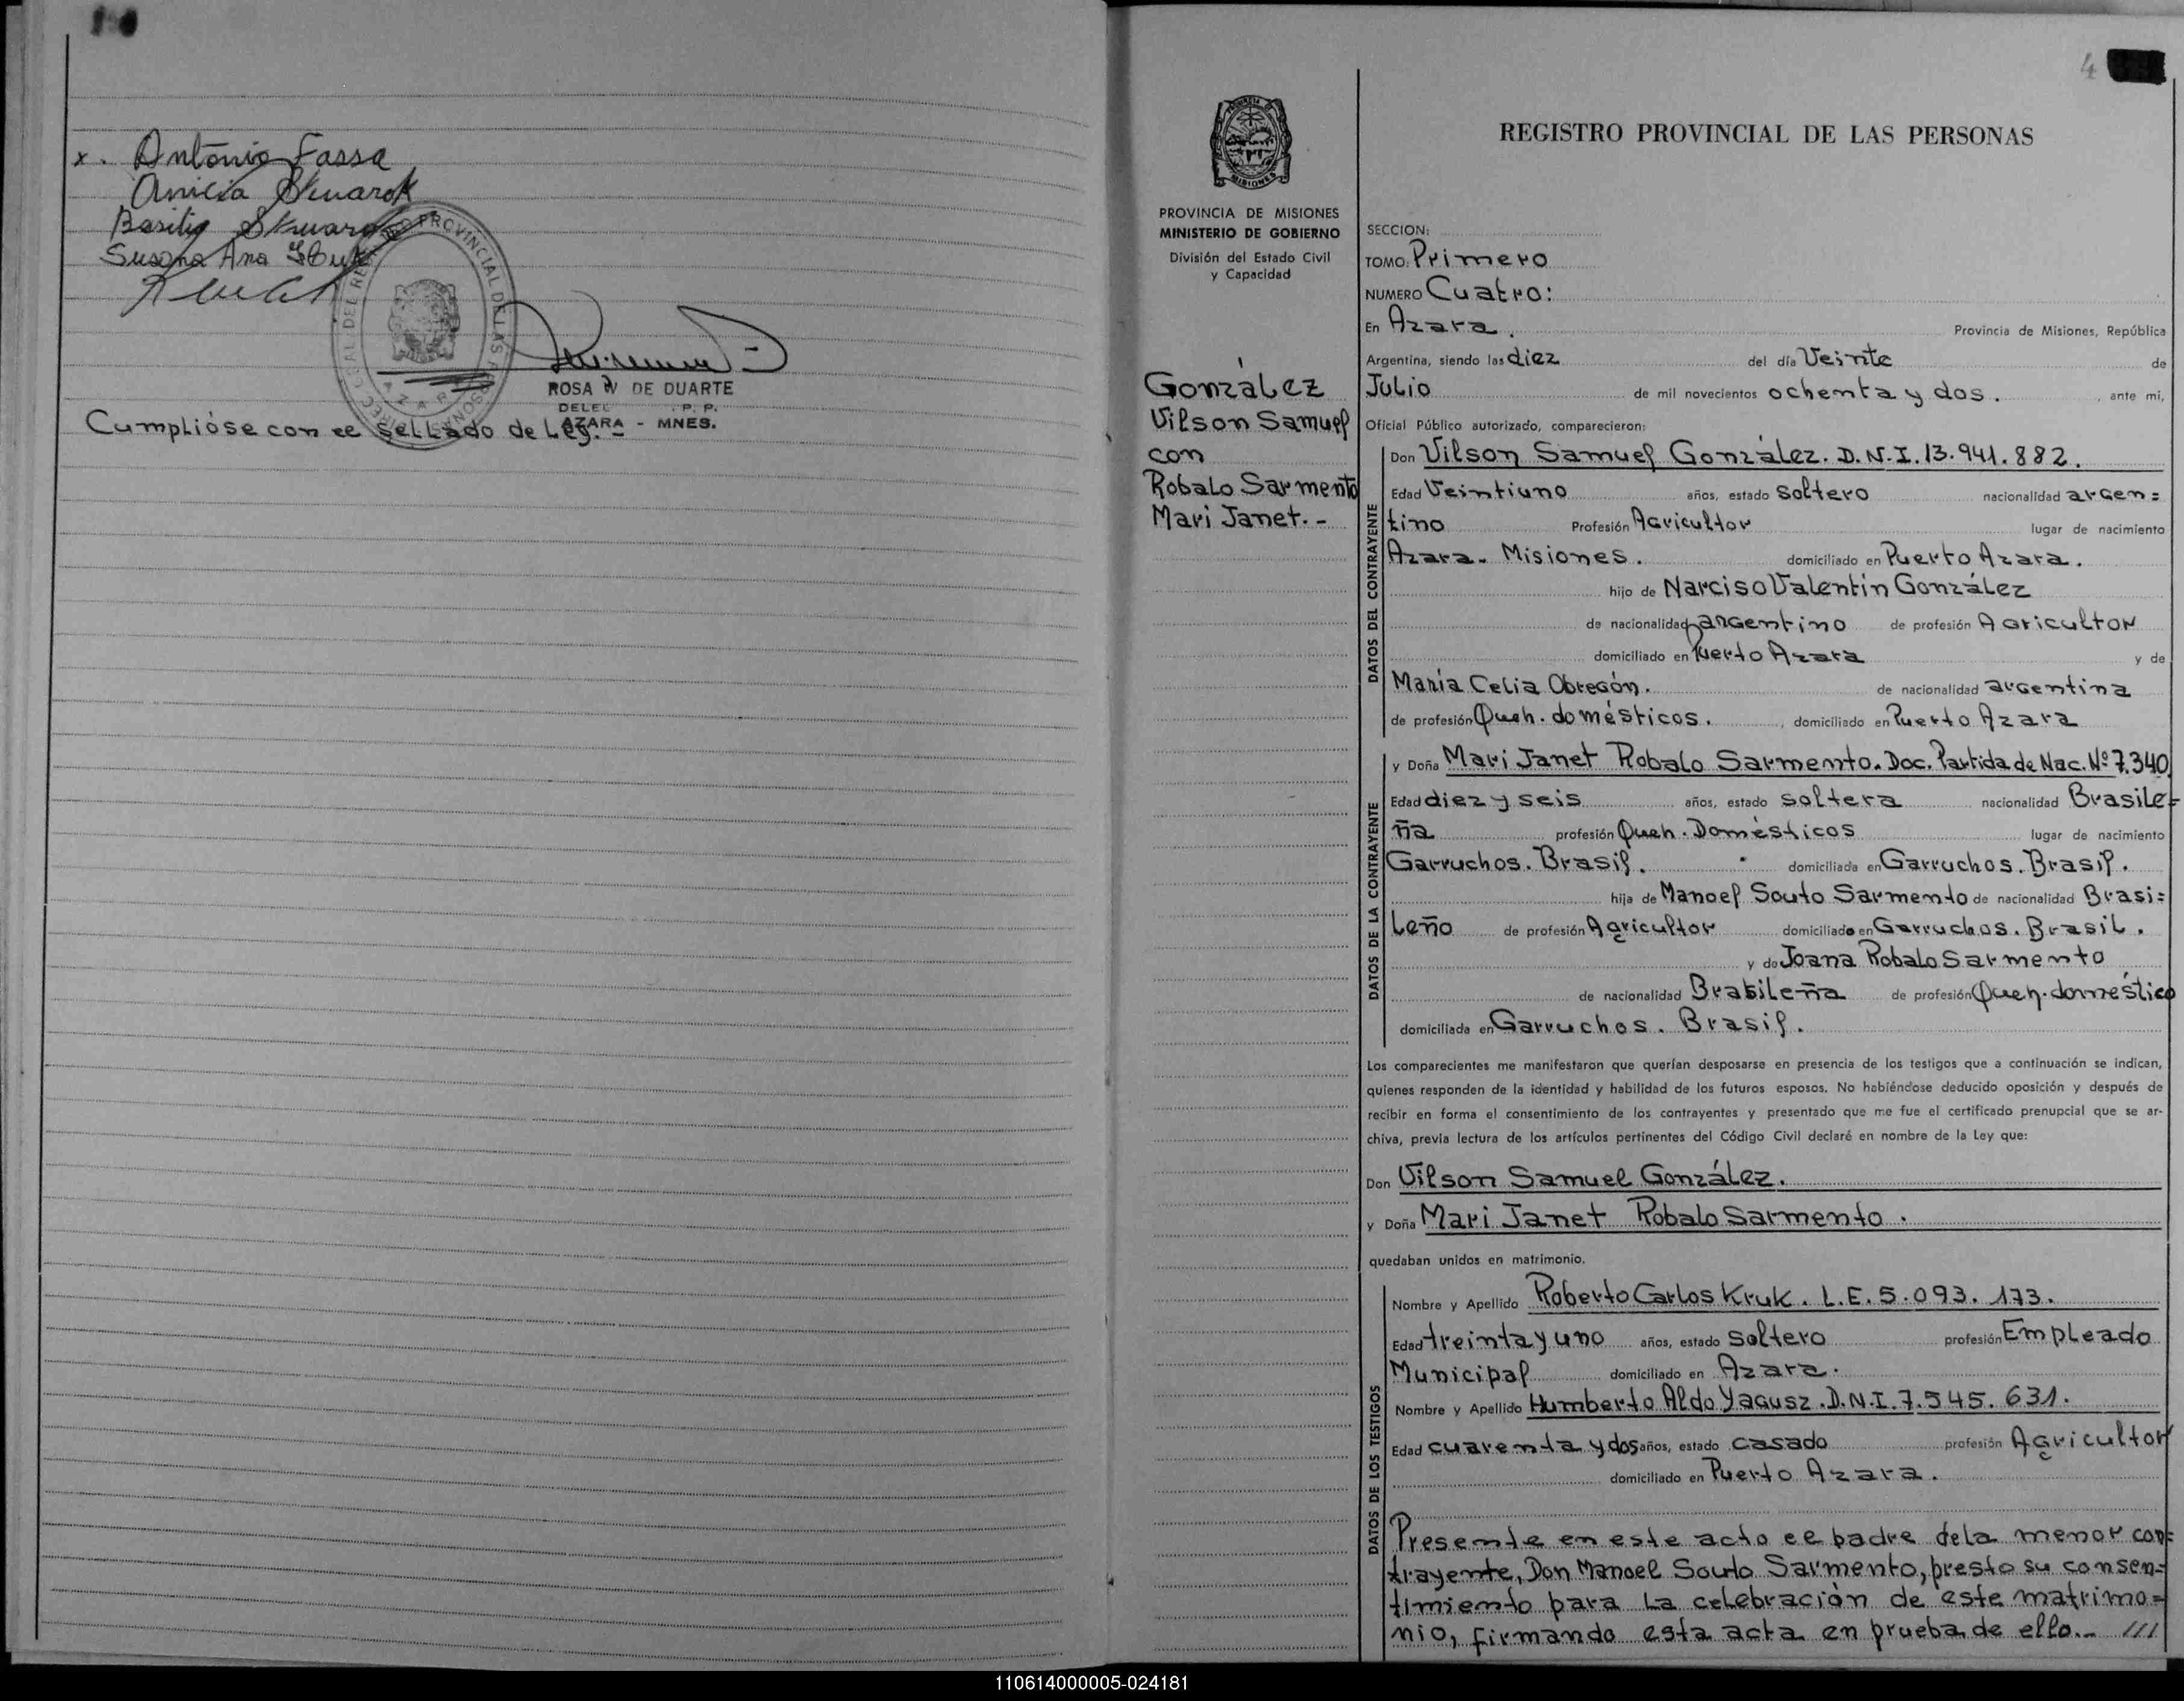 x. Antonio Fassa
Anicia Skwarok
Basilio Skwarok
Susana Ana
ROSA W DE DUARTE
AZARA - MNES.
Cumplióse con el sellado de Ley. -
4
PROVINCIA DE MISIONES
MINISTERIO DE GOBIERNO
División del Estado Civil
y Capacidad
González
Vilson Samuel
con
Robalo Sarmento
Mari Janet. -
REGISTRO PROVINCIAL DE LAS PERSONAS
SECCION:
TOMO: Primero
NUMERO Cuatro:
En Azara. Provincia de Misiones, República
Argentina, siendo las diez del día Veinte de
Julio de mil novecientos ochenta y dos. , ante mi,
Oficial Público autorizado, comparecieron:
DATOS DEL CONTRAYENTE
Don Vilson Samuel González. D.N.I. 13.941.882.
Edad Veintiuno años, estado soltero nacionalidad argen=
tino Profesión Agricultor lugar de nacimiento
Azara. Misiones. domiciliado en Puerto Azara.
hijo de Narciso Valentín González
de nacionalidad argentino de profesión Agricultor
domiciliado en Puerto Azara y de
María Celia Obregón. de nacionalidad argentina
de profesión Queh. domésticos. , domiciliado en Puerto Azara
DATOS DE LA CONTRAYENTE
y Doña Mari Janet Robalo Sarmento. Doc. Partida de Nac. Nº 7.340
Edad diez y seis años, estado soltera nacionalidad Brasile=
ña profesión Queh. Domésticos lugar de nacimiento
Garruchos. Brasil. domiciliada en Garruchos. Brasil.
hija de Manoel Souto Sarmento de nacionalidad Brasi=
leño de profesión Agricultor domiciliado en Garruchos. Brasil.
y de Joana Robalo Sarmento
de nacionalidad Brasileña de profesión Queh. doméstico
domiciliada en Garruchos. Brasil.
Los comparecientes me manifestaron que querían desposarse en presencia de los testigos que a continuación se indican,
quienes responden de la identidad y habilidad de los futuros esposos. No habiéndose deducido oposición y después de
recibir en forma el consentimiento de los contrayentes y presentado que me fue el certificado prenupcial que se ar-
chiva, previa lectura de los artículos pertinentes del Código Civil declaré en nombre de la Ley que:
Don Vilson Samuel González.
y Doña Mari Janet Robalo Sarmento.
quedaban unidos en matrimonio.
DATOS DE LOS TESTIGOS
Nombre y Apellido Roberto Carlos Kruk. L.E. 5.093.173.
Edad treinta y uno años, estado soltero profesión Empleado
Municipal domiciliado en Azara.
Nombre y Apellido Humberto Aldo Yagusz. D.N.I. 7.545.631.
Edad cuarenta y dos años, estado casado profesión Agricultor
domiciliado en Puerto Azara.
Presente en este acto el padre de la menor con=
trayente, Don Manoel Souto Sarmento, presto su consen=
timiento para la celebración de este matrimo=
nio, firmando esta acta en prueba de ello.- ///
110614000005-024181